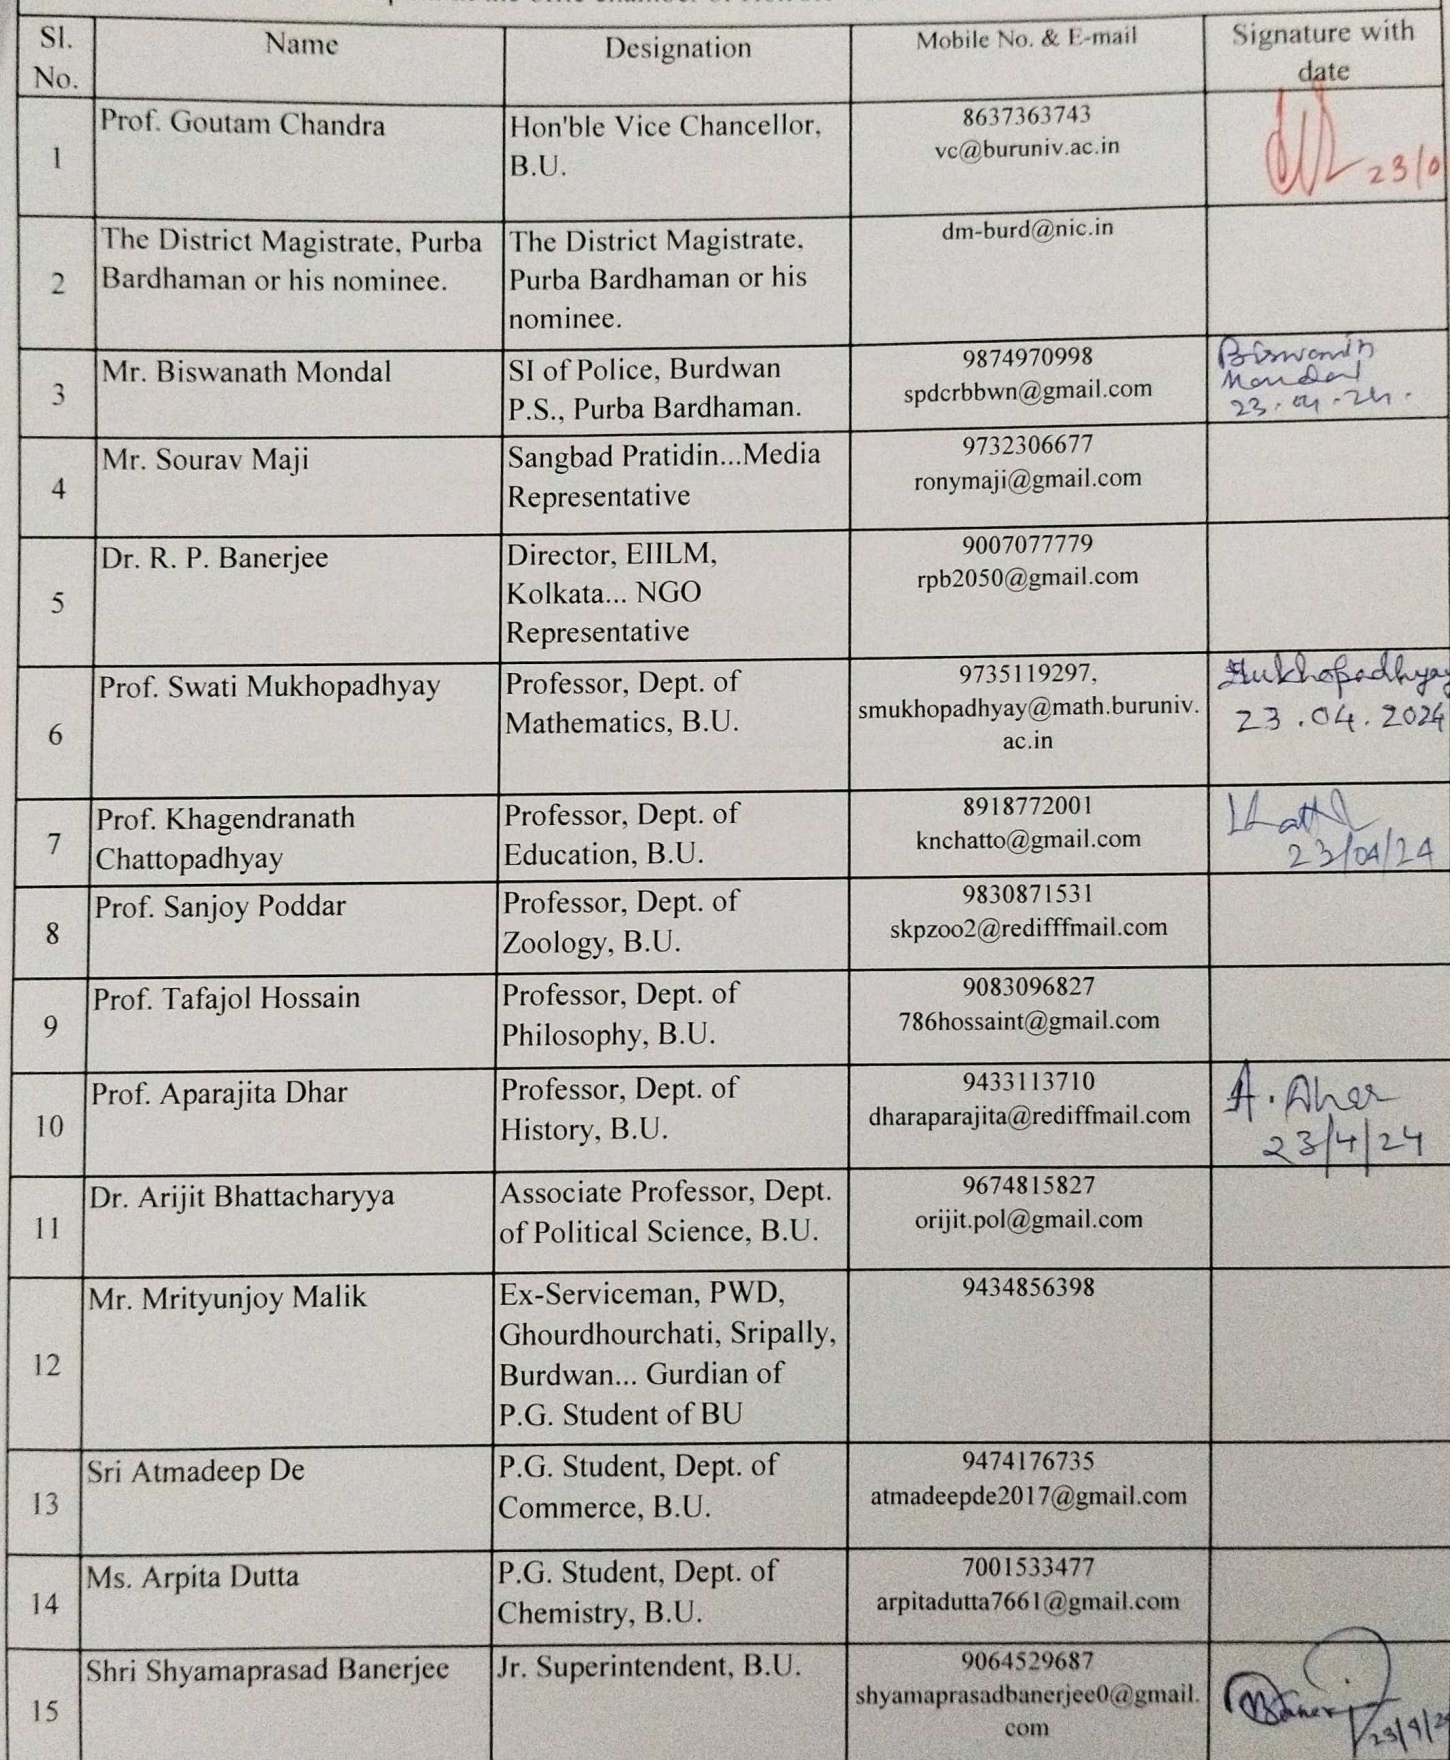 Sl. No. Name Designation Mobile No. & E-mail Signature with date
1 Prof. Goutam Chandra Hon'ble Vice Chancellor, B.U. 8637363743 vc@buruniv.ac.in 23/0
2 The District Magistrate, Purba Bardhaman or his nominee. The District Magistrate, Purba Bardhaman or his nominee. dm-burd@nic.in
3 Mr. Biswanath Mondal SI of Police, Burdwan P.S., Purba Bardhaman. 9874970998 spdcrbbwn@gmail.com Biswanath Mondal 23.04.24.
4 Mr. Sourav Maji Sangbad Pratidin...Media Representative 9732306677 ronymaji@gmail.com
5 Dr. R. P. Banerjee Director, EIILM, Kolkata... NGO Representative 9007077779 rpb2050@gmail.com
6 Prof. Swati Mukhopadhyay Professor, Dept. of Mathematics, B.U. 9735119297, smukhopadhyay@math.buruniv.ac.in SMukhopadhyay 23.04.2024
7 Prof. Khagendranath Chattopadhyay Professor, Dept. of Education, B.U. 8918772001 knchatto@gmail.com 23/04/24
8 Prof. Sanjoy Poddar Professor, Dept. of Zoology, B.U. 9830871531 skpzoo2@redifffmail.com
9 Prof. Tafajol Hossain Professor, Dept. of Philosophy, B.U. 9083096827 786hossaint@gmail.com
10 Prof. Aparajita Dhar Professor, Dept. of History, B.U. 9433113710 dharaparajita@rediffmail.com A. Dhar 23/4/24
11 Dr. Arijit Bhattacharyya Associate Professor, Dept. of Political Science, B.U. 9674815827 orijit.pol@gmail.com
12 Mr. Mrityunjoy Malik Ex-Serviceman, PWD, Ghourdhourchati, Sripally, Burdwan... Gurdian of P.G. Student of BU 9434856398
13 Sri Atmadeep De P.G. Student, Dept. of Commerce, B.U. 9474176735 atmadeepde2017@gmail.com
14 Ms. Arpita Dutta P.G. Student, Dept. of Chemistry, B.U. 7001533477 arpitadutta7661@gmail.com
15 Shri Shyamaprasad Banerjee Jr. Superintendent, B.U. 9064529687 shyamaprasadbanerjee0@gmail.com 23/4/2